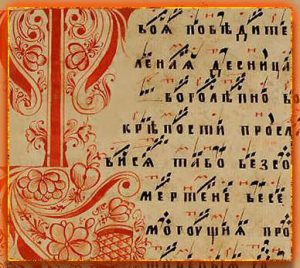 воѧ побѣдите
ленаѧ десница
боголѣпно в
крѣпости просл
висѧ табо безсо
мертене весе
могоущиѧ про